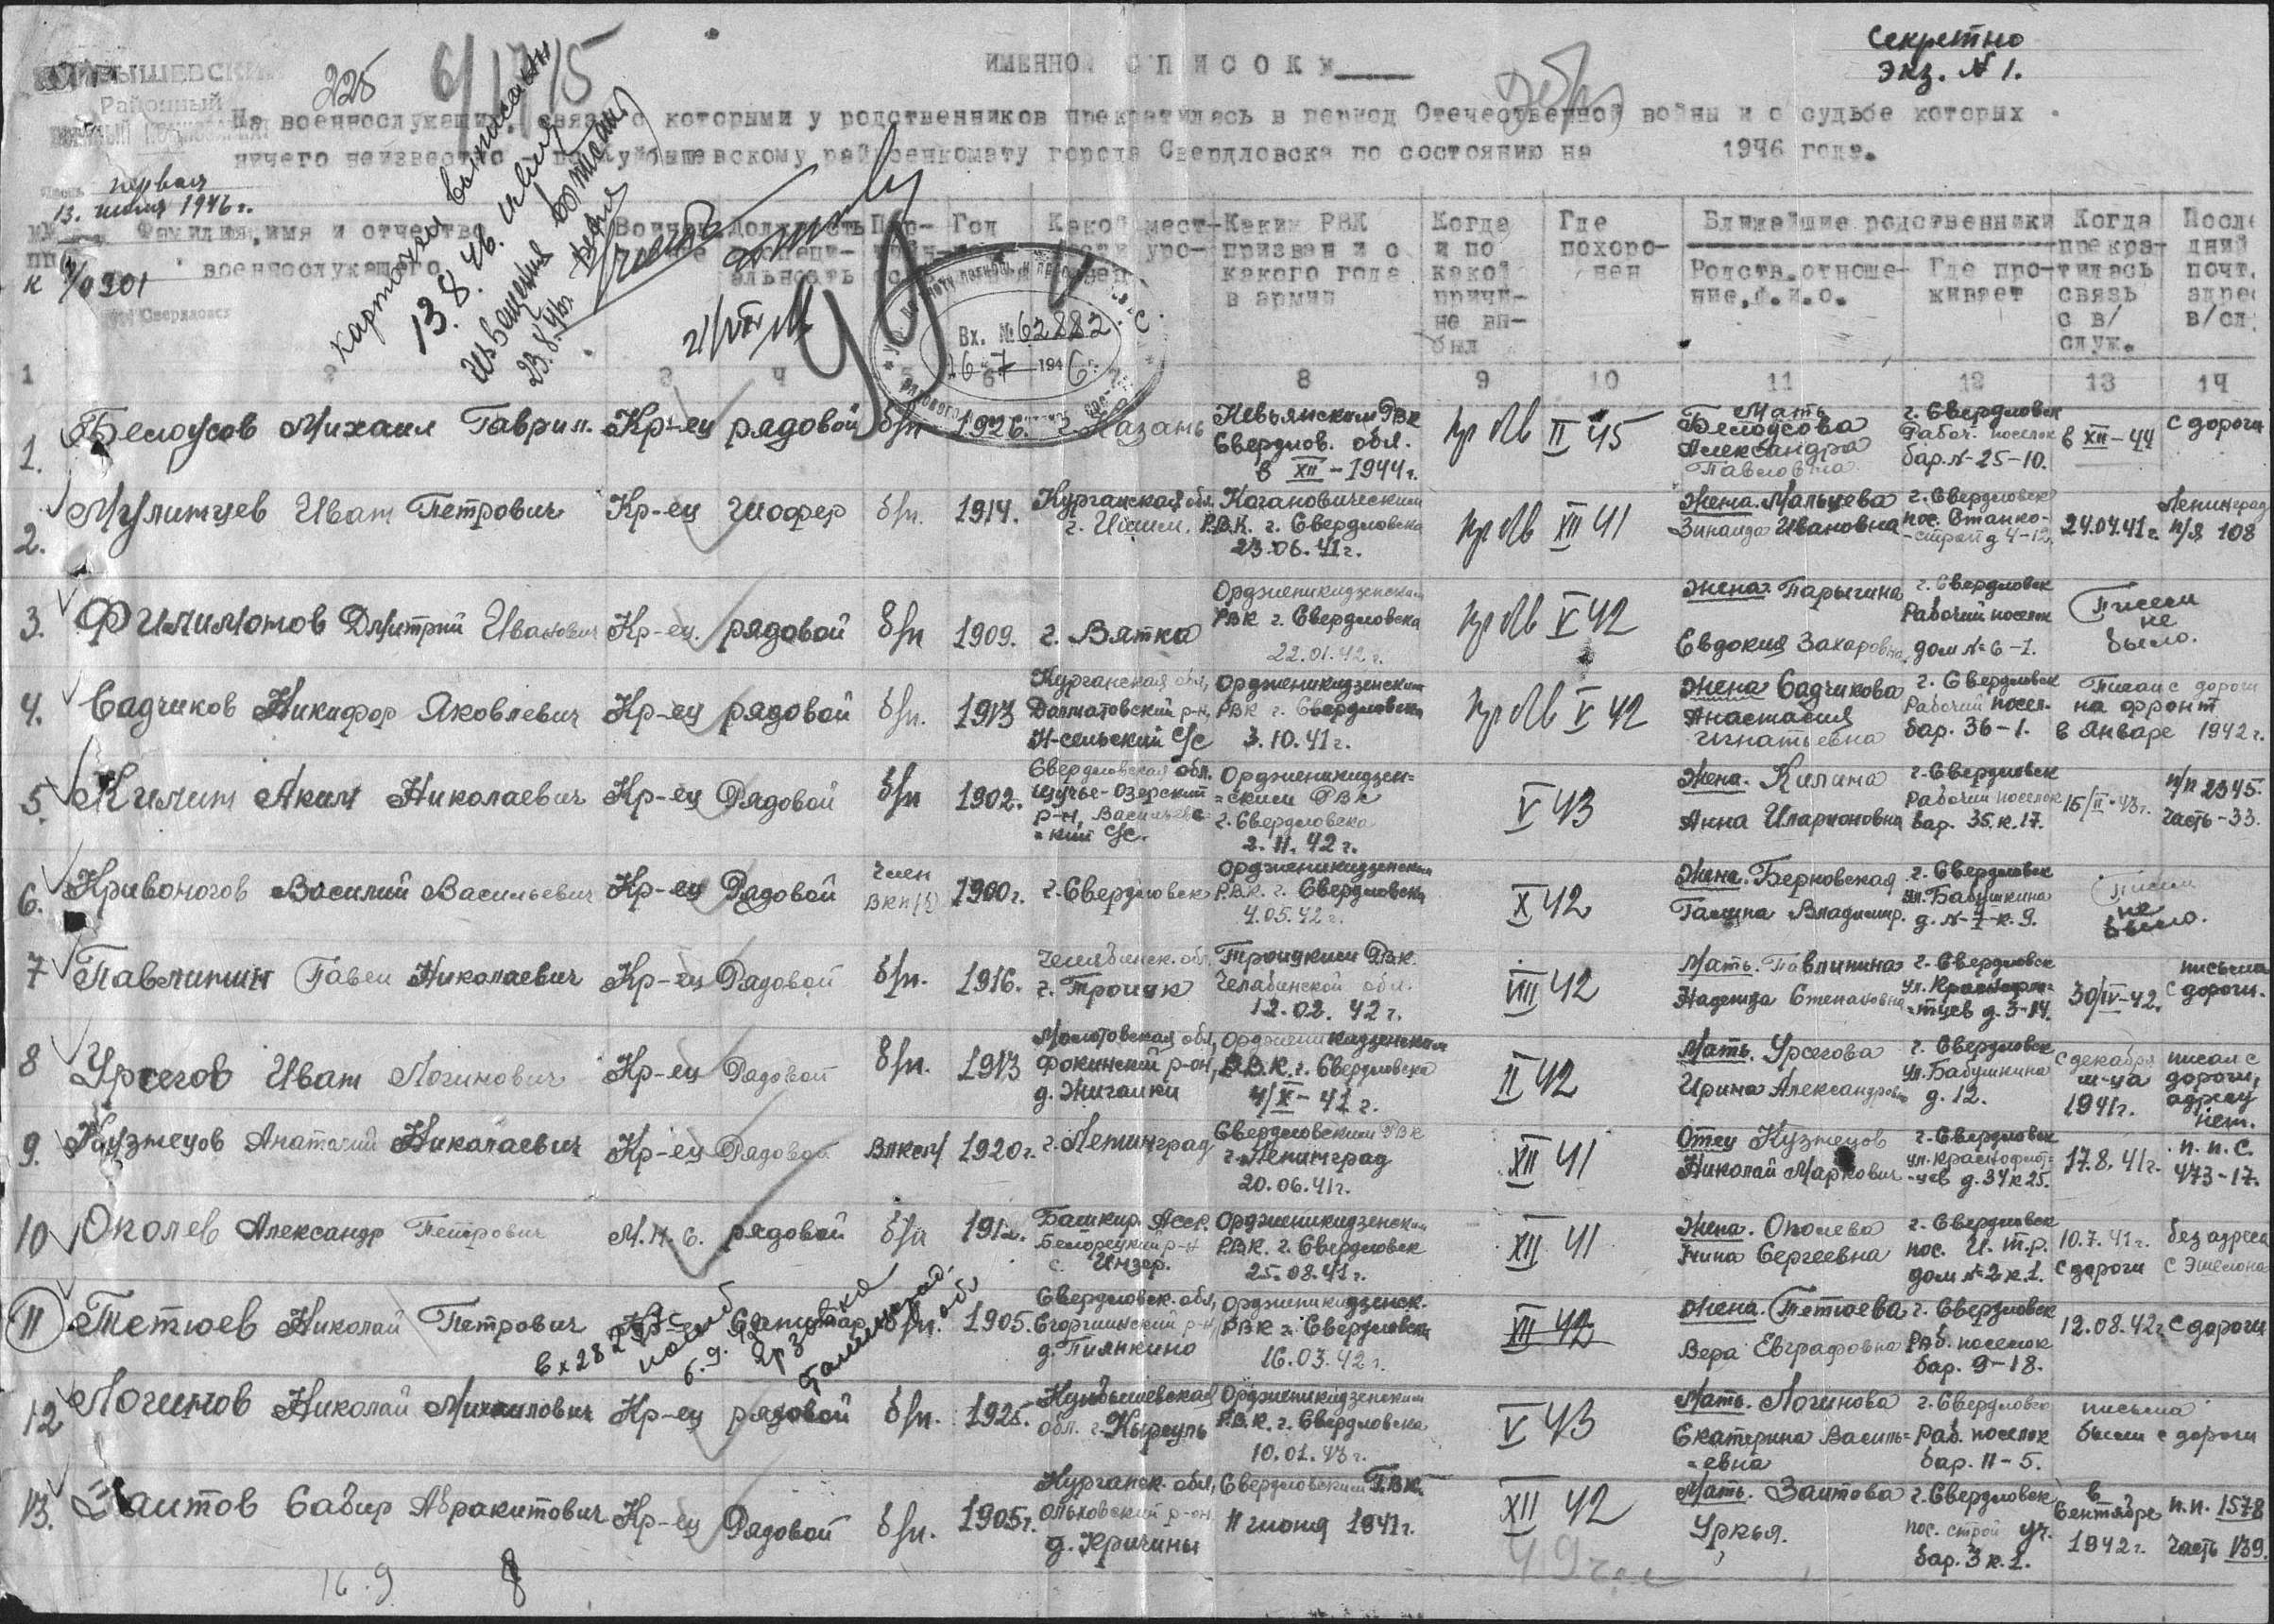 Секретно
Экз. № 1.
ИМЕННОЙ СПИСОК №
225
6/17/5
КУЙБЫШЕВСКИЙ
Районный
ВОЕННЫЙ КОМИССАРИАТ
На военнослужащих, связь с которыми у родственников прекратилась в период Отечественной войны и о судьбе которых
ничего неизвестно по Куйбышевскому райвоенкомату города Свердловска по состоянию на 1946 года.
первая
13. июля 1946 г.
к 7/0901
г. Свердловск
карточки выписаны
13.8.46.
Извещения
23.8.46г.
Вх. № 62882
16-7-1946 г.
№№ пп
Фамилия, имя и отчество военнослужащего
Воинск. звание
Должность специальность
Пар-тийн-ость
Год
Какой мест-ности уро-
Каким РВК призван и с какого года в армии
Когда и по какой причи-не вы-был
Где похоро-нен
Ближайшие родственники
Родств. отноше-ние, ф. и. о.
Где про-живает
Когда прекра-тилась связь с в/служ.
После дний почт. адрес в/сл.
1 2 3 4 5 6 7 8 9 10 11 12 13 14
1. Белоусов Михаил Гаврил. Кр-ец рядовой б/п 1926. г. Казань
Невьянским РВК Свердлов. обл. в XII-1944г.
пр б/в II 45
Мать Белоусова Александра Павловна
г. Свердловск Рабоч. поселок бар. №-25-10.
в XII-44
с дороги
2. Мулинцев Иван Петрович Кр-ец шофер б/п. 1914.
Курганская обл. г. Ишим.
Кагановическим Р.В.К. г. Свердловска 23.06.41г.
пр б/в XII 41
Жена. Мальцева Зинаида Ивановна
г. Свердловск пос. Станко-строй д 4-12.
24.07.41г.
Ленинград п/я 108
3. Филимонов Дмитрий Иванович Кр-ец. рядовой б/п 1909. г. Вятка
Орджоникидзенским РВК г. Свердловска 22.01.42 г.
пр б/в V 42
Жена. Парыгина Евдокия Захаровна
г. Свердловск Рабочий поселок дом № 6-1.
Писем не было.
4. Садчиков Никифор Яковлевич Кр-ец рядовой б/п. 1913
Курганская обл., Далматовский р-н, Н-сельский с/с
Орджоникидзенским РВК г. Свердловска 3.10.41г.
пр б/в V 42
Жена Садчикова Анастасия Игнатьевна
г. Свердловск Рабочий посел. бар. 36-1.
Писал с дороги на фронт в январе 1942 г.
5. Килин Аким Николаевич Кр-ец Рядовой б/п 1902.
Свердловская обл. Щучье-Озерский р-н, Васильевс-кий с/с.
Орджоникидзен-ским РВК г. Свердловска 2.11.42 г.
V 43
Жена. Килина Анна Иларионовна
г. Свердловск Рабочий поселок бар. 35. к. 17.
15/II-43г.
п/п 2345. Часть-33.
6. Кривоногов Василий Васильевич Кр-ец Рядовой член ВКП(б) 1900г. г. Свердловск
Орджоникидзенским Р.В.К. г. Свердловска 4.05.42г.
X 42
Жена. Берновская Галина Владимир.
г. Свердловск ул. Бабушкина д. №-7-к. 9.
Писем не было.
7 Павлинин Павел Николаевич Кр-ец Рядовой б/п. 1916.
Челябинск. обл. г. Троицк
Троицким РВК. Челябинской обл. 12.02.42 г.
VIII 42
Мать. Павлинина Надежда Степановна
г. Свердловск ул. Краснофло-тцев д. 3-14.
30/IV-42.
письма с дороги.
8 Урсегов Иван Логинович Кр-ец Рядовой б/п. 1913
Молотовская обл, Фокинский р-он, д. Жигалки
Орджоникидзенским Р.В.К. г. Свердловска 4/X-41 г.
II 42
Мать. Урсегова Ирина Александровна
г. Свердловск ул. Бабушкина д. 12.
с декабря м-ца 1941г.
писал с дороги, адресу нет.
9. Кузнецов Анатолий Николаевич Кр-ец Рядовой ВЛКСМ 1920г. г. Ленинград
Свердловским РВК г. Ленинград 20.06.41г.
XII 41
Отец Кузнецов Николай Маркович
г. Свердловск ул. Краснофлот-цев д. 34 к 25.
17.8.41г.
п.п.с. 473-17.
10 Околев Александр Петрович М.Н.С. рядовой б/п 1912.
Башкир. Асср. Белорецкий р-н с. Инзер.
Орджоникидзенским РВК. г. Свердловск 25.08.41г.
XII 41
Жена. Околева Нина Сергеевна
г. Свердловск пос. И.Т.Р. дом № 2 к. 1.
10.7.41г. с дороги
без адреса с Эшелона
11 Тетюев Николай Петрович Кр-ец Санитар б/п. 1905.
Свердловск. обл, Егоршинский р-н, д. Пиянкино
Орджоникидзенск. РВК г. Свердловска 16.03.42 г.
XII 42
Жена. Тетюева Вера Евграфовна
г. Свердловск Раб. поселок бар. 9-18.
12.08.42г.
с дороги
12 Логинов Николай Михаилович Кр-ец рядовой б/п. 1925.
Куйбышевская обл.
Орджоникидзенским Р.В.К. г. Свердловска 10.01.43 г.
V 43
Мать. Логинова Екатерина Василь-евна
г. Свердловск Раб. поселок бар. 11-5.
письма были с дороги
13. Заитов Сабир Абракитович Кр-ец Рядовой б/п. 1905г.
Курганск. обл, Ольховский р-он, д. Кричины
Свердловским Г.В.К. 11 июня 1941г.
XII 42
Мать. Заитова Уркья.
г. Свердловск, пос. строй уч. бар. 3 к. 1.
в Сентябре 1942 г.
п.п. 1578 Часть 139.
16.9
8